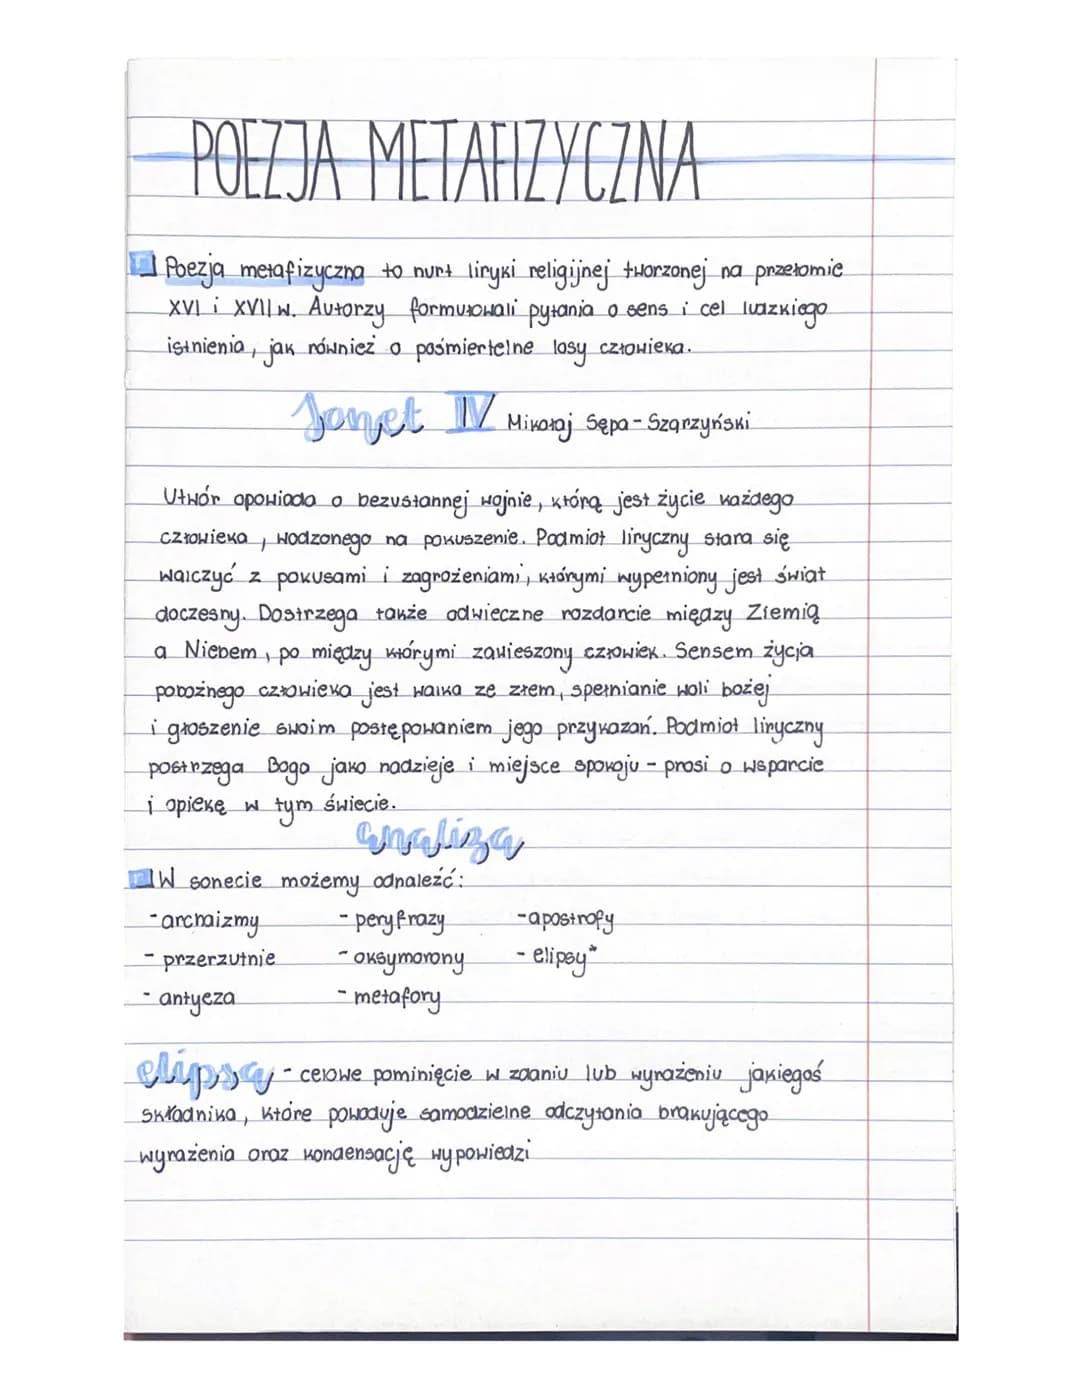 POEZJA METAFIZYCZNA
Poezja metafizyczna to nurt liryki religijnej tworzonej na przełomie
XVI i XVII w. Autorzy formułowali pytania o sens i cel ludzkiego
istnienia, jak również o pośmiertelne losy człowieka.
Sonet IV Mikołaj Sępa-Szarzyński
Utwór opowiada o bezustannej wojnie, którą jest życie każdego
człowieka, wodzonego na pokuszenie. Podmiot liryczny stara się
walczyć z pokusami i zagrożeniami, którymi wypełniony jest świat
doczesny. Dostrzega także odwieczne rozdarcie między Ziemią
a Niebem, po między którymi zawieszony człowiek. Sensem życia
pobożnego człowieka jest walka ze złem, spełnianie woli bożej
i głoszenie swoim postępowaniem jego przykazań. Podmiot liryczny
postrzega Boga jako nadzieje i miejsce spokoju - prosi o wsparcie
i opiekę w tym świecie.
analiza
W sonecie możemy odnaleźć:
-archaizmy - peryfrazy -apostrofy
- przerzutnie - oksymorony - elipsy*
- antyeza - metafory
elipsa - celowe pominięcie w zdaniu lub wyrażeniu jakiegoś
składnika, które powoduje samodzielne odczytania brakującego
wyrażenia oraz kondensację wypowiedzi